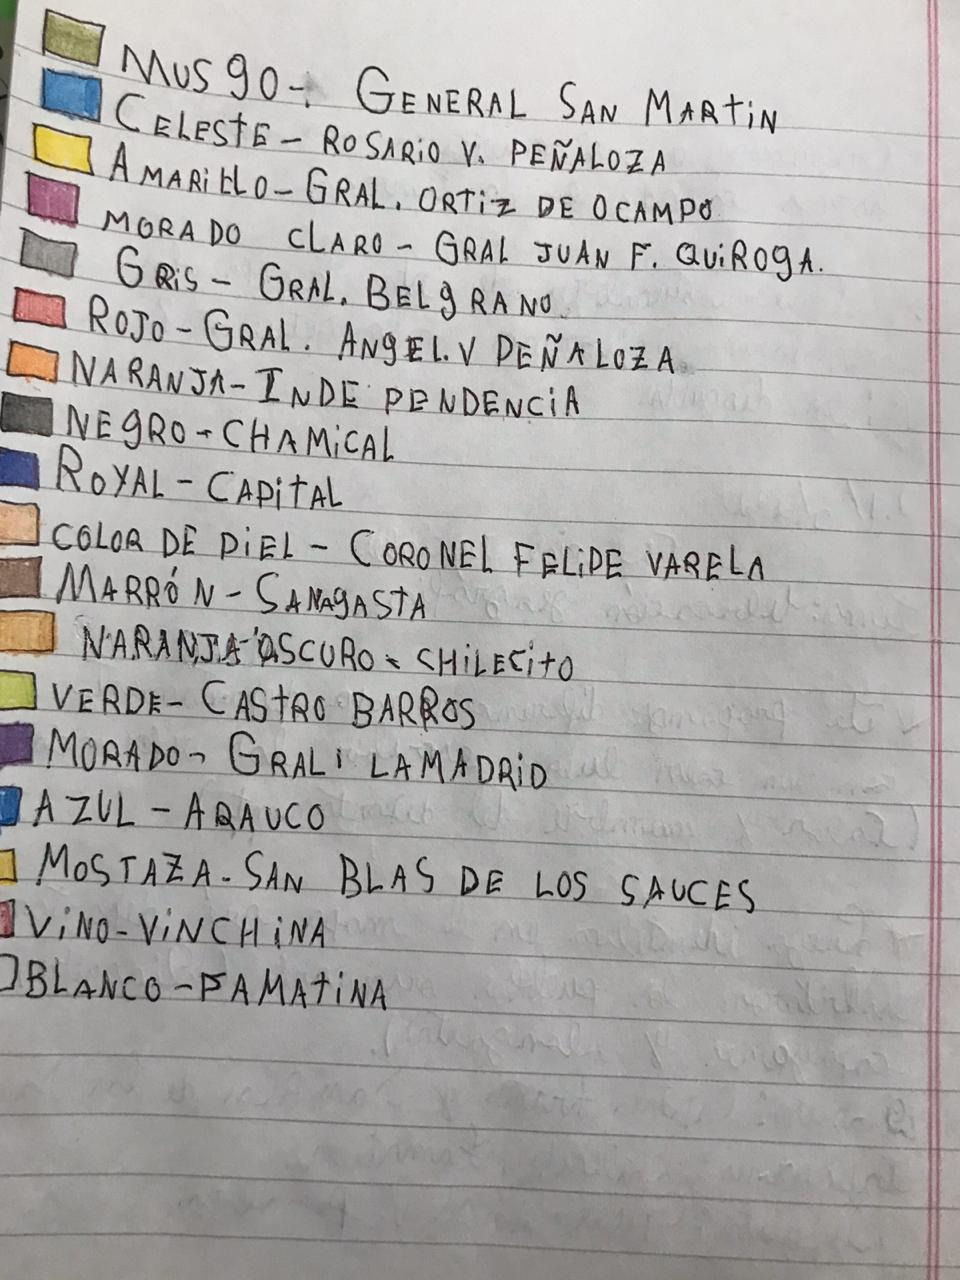 MUS90-. GENERAL SAN MARTIN
CELESTE - ROSARIO V. PEÑALOZA
AMARILLO - GRAL. ORTIZ DE OCAMPO
MORADO CLARO - GRAL JUAN F. QUIROGA.
GRIS - GRAL. BELGRANO.
ROJO - GRAL. ANGEL.V PEÑALOZA.
NARANJA - INDEPENDENCIA
NEGRO - CHAMICAL
ROYAL - CAPITAL
COLOR DE PIEL - CORONEL FELIPE VARELA
MARRÓN - SANAGASTA
NARANJA OSCURO - CHILECITO
VERDE - CASTRO BARROS
MORADO - GRAL. LAMADRID
AZUL - ARAUCO
MOSTAZA - SAN BLAS DE LOS SAUCES
VINO - VINCHINA
BLANCO - FAMATINA